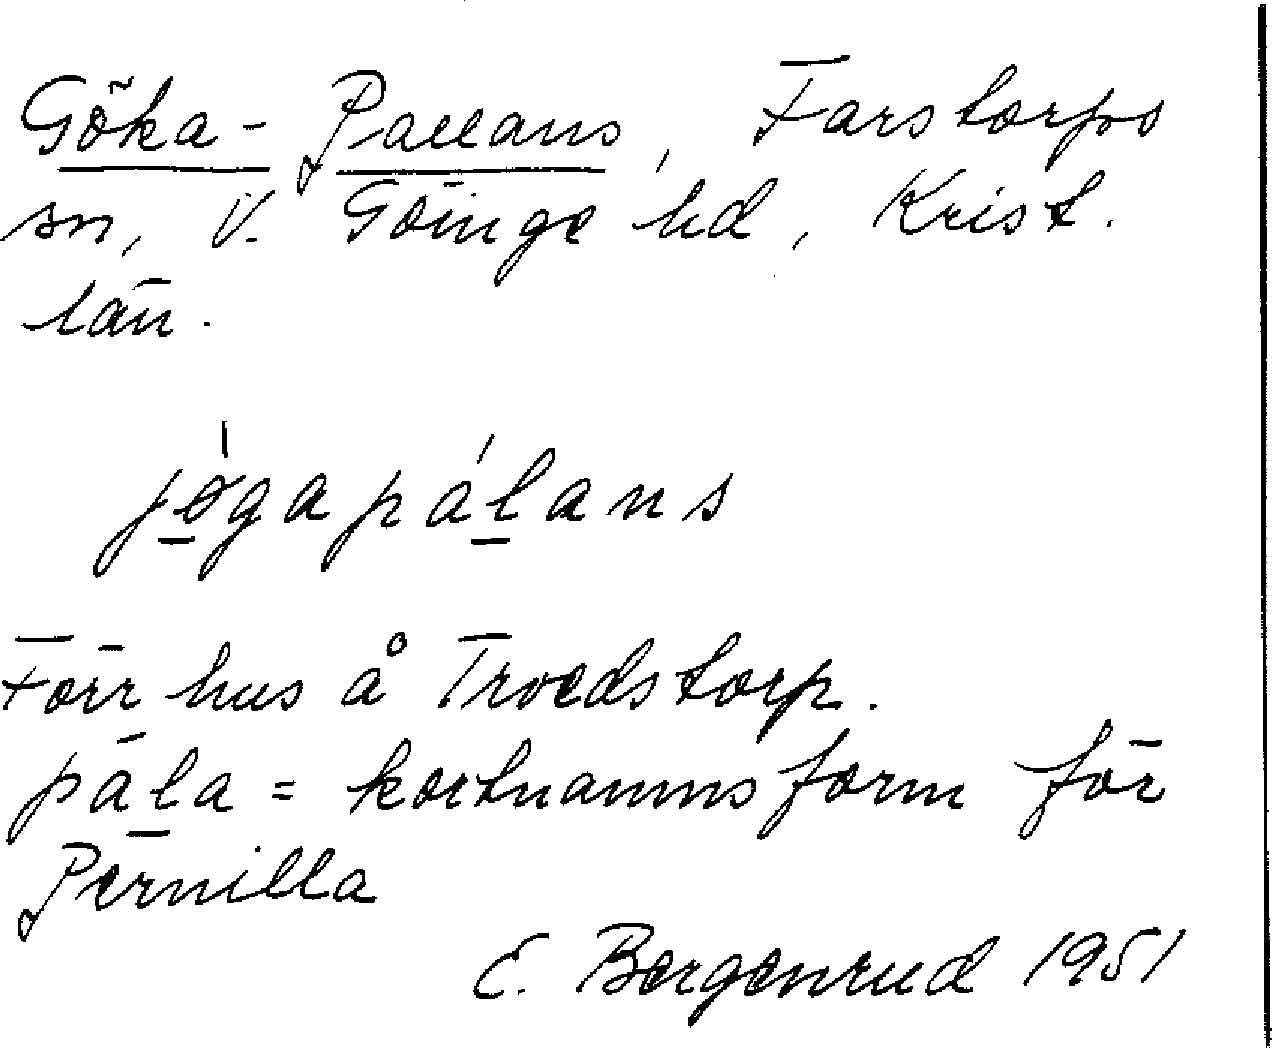 Göka-Pallans, Farstorps
sn, V. Göinge hd, Krist.
län.
jøgapálans
Förr hus å Troedstorp.
pála = kortnamnsform för
Pernilla
E. Bergenrud 1951